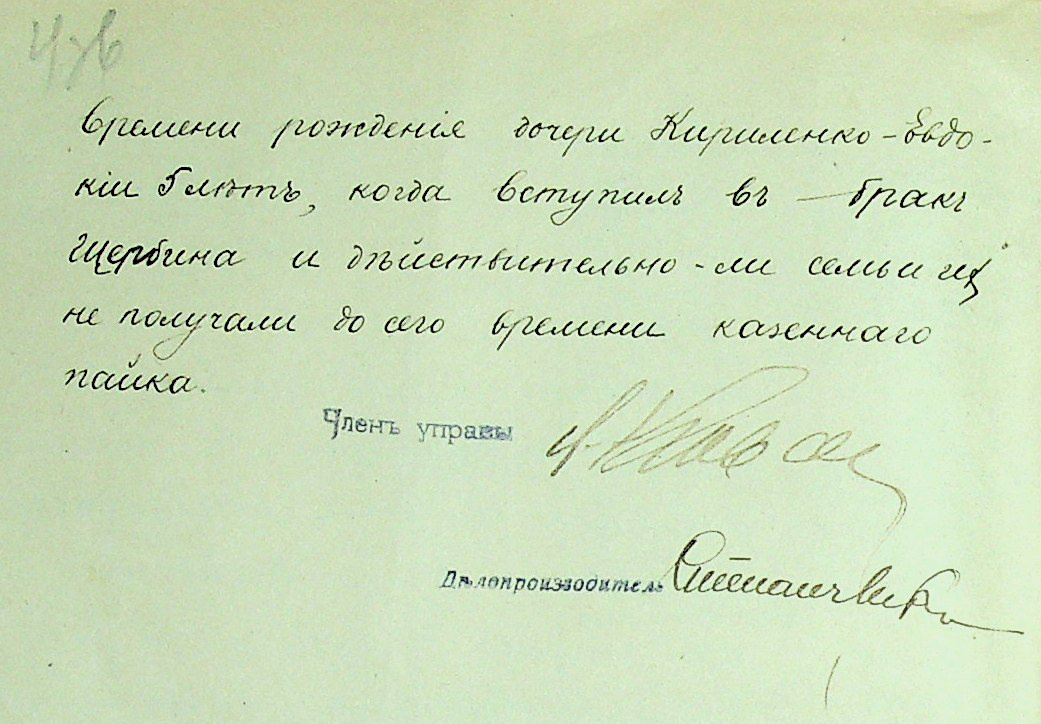 времени рожденія дочери Кириленко-Евдо-
кіи 5 лѣтъ, когда вступилъ въ бракъ
Щербина и дѣйствительно-ли семьи их
не получали до сего времени казеннаго
пайка.
Членъ управы
Дѣлопроизводитель